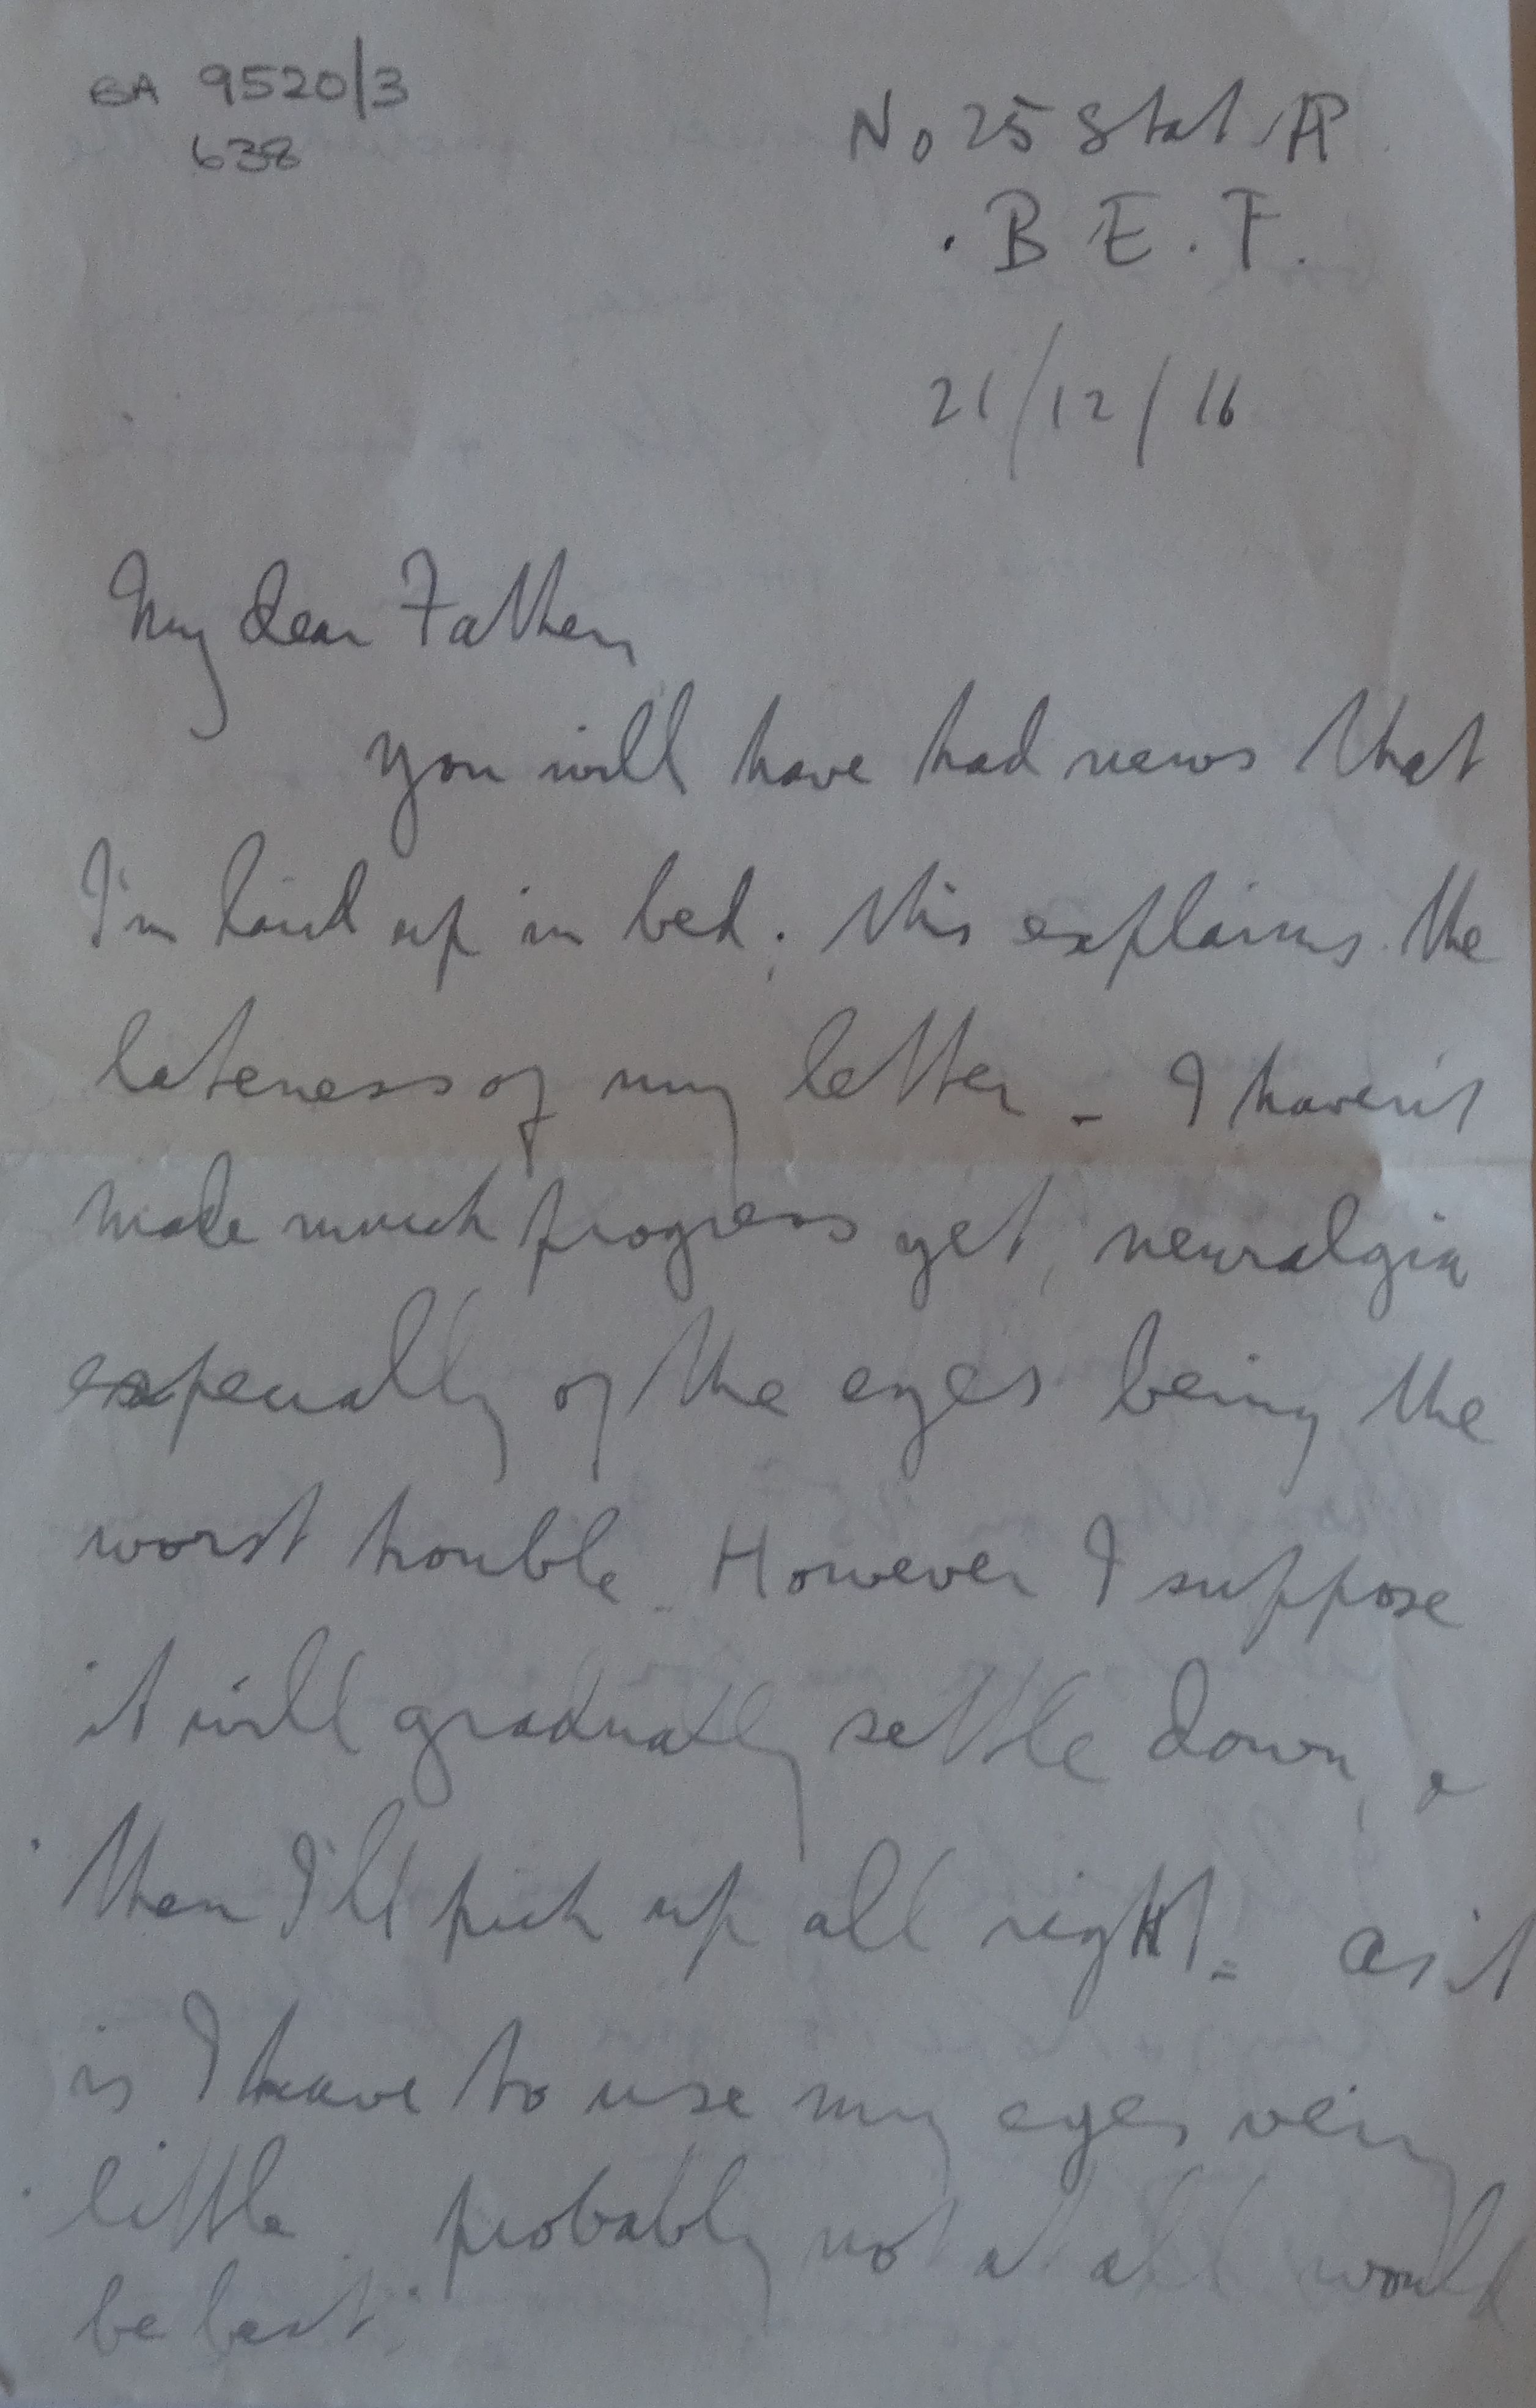 GA 9520/3
638
No 25 Stat. H
B E. F.
21/12/16
My dear Father,
you will have had news that
I'm laid up in bed; this explains the
lateness of my letter - I haven't
made much progress yet, neuralgia
especially of the eyes being the
worst trouble. However I suppose
it will gradually settle down, &
then I'll pick up all right - as it
is I have to use my eyes very
little. probably not at all would
be best.